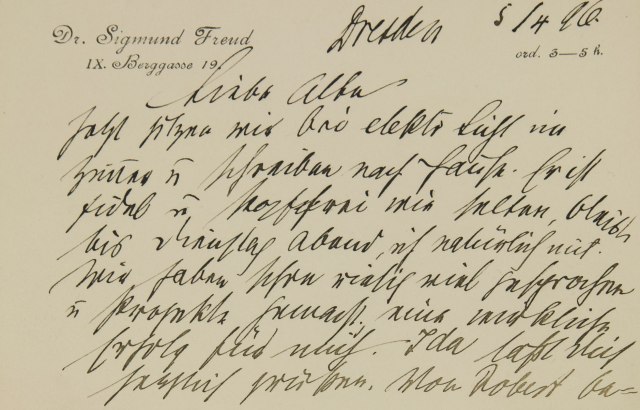 Dr. Sigmund Freud
IX. Berggasse 19.
Dresden 5/4 96.
ord. 3–5 h.
Liebe Alte
Jetzt sitzen wir bei elektr Licht im
Zimmer u schreiben nach Hause. Er ist
fidel u kopffrei wie selten, bleibt
bis Dienstag Abend, ich natürlich mit.
Wir haben schon riesig viel gesprochen
u Projekte gemacht, eine wirkliche
Erfolg für mich. Ida laßt Dich
herzlich grüßen. Von Robert be=